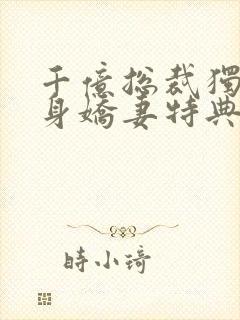 千億總裁獨
身嬌妻特典
時小琦